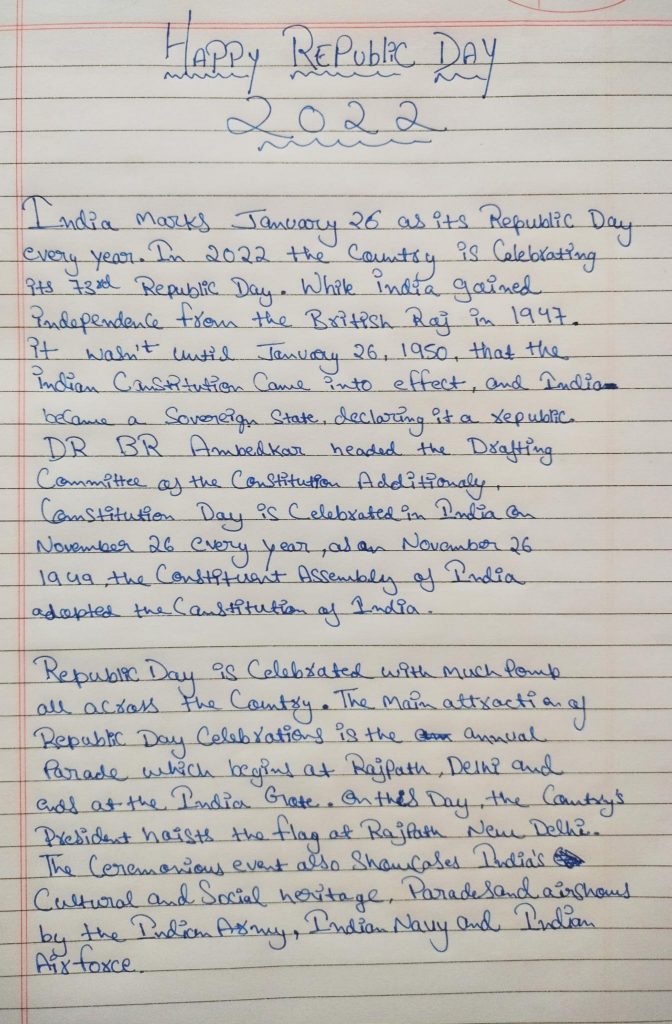 HAPPY REPUBLIC DAY
2022
India marks January 26 as its Republic Day
every year. In 2022 the Country is Celebrating
its 73rd Republic Day. While india gained
independence from the British Raj in 1947.
it wasn't until January 26, 1950, that the
indian Constitution Came into effect, and India
became a Sovereign State, declaring it a republic.
DR BR Ambedkar headed the Drafting
Committee of the Constitution Additionaly,
Constitution Day is Celebrated in India on
November 26 every year, as on November 26
1949, the Constituent Assembly of India
adopted the Constitution of India.
Republic Day is Celebrated with much Pomp
all across the Country. The main attraction of
Republic Day Celebrations is the annual
Parade which begins at Rajpath, Delhi and
ends at the India Gate. On this Day, the Country's
President hoists the flag at Rajpath New Delhi.
The Ceremonious event also Showcases India's
Cultural and Social heritage, Parades and airshows
by the Indian Army, Indian Navy and Indian
Airforce.